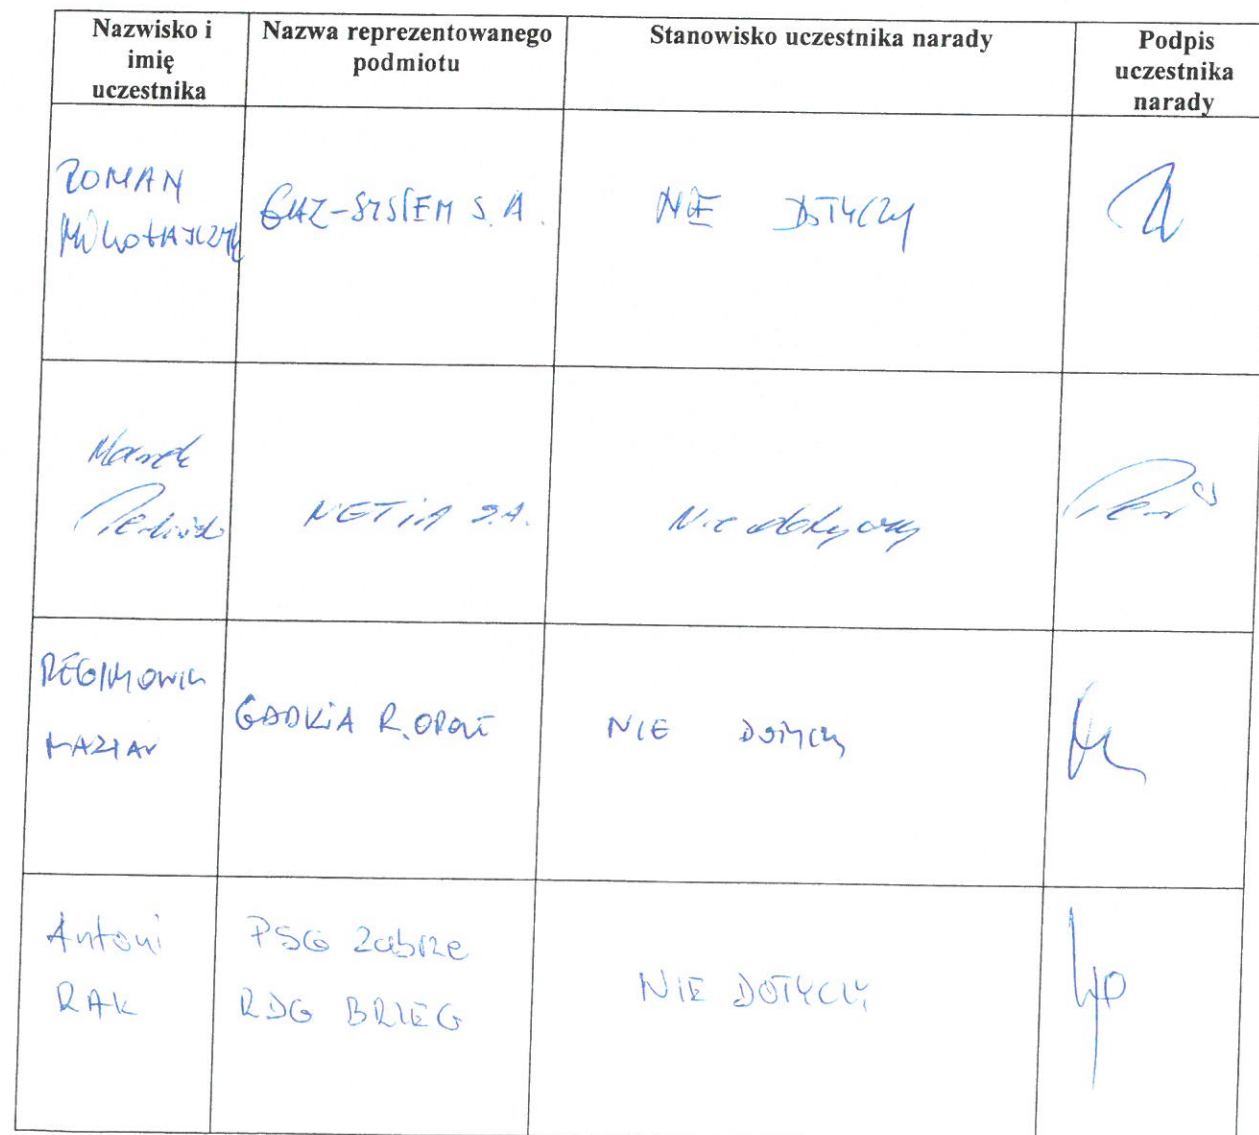 Nazwisko i
imię
uczestnika
Nazwa reprezentowanego
podmiotu
Stanowisko uczestnika narady
Podpis
uczestnika
narady
ROMAN
MIKOŁAJCZYK
GAZ-SYSTEM S.A.
NIE DOTYCZY
Marek
NETiA S.A.
Nie dotyczy
NIE DOTYCZY
Antoni
RAK
PSG Zabrze
RDG BRZEG
NIE DOTYCZY